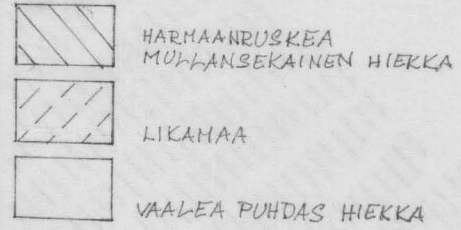 HARMAANRUSKEA
MULLANSEKAINEN HIEKKA
LIKAMAA
VAALEA PUHDAS HIEKKA